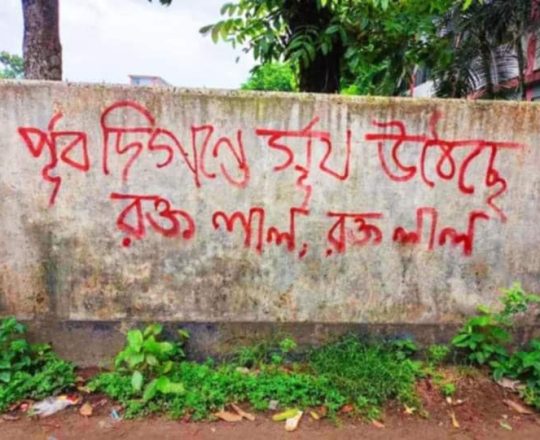 পূর্ব দিগন্তে সূর্য উঠেছে
রক্ত লাল, রক্ত লাল